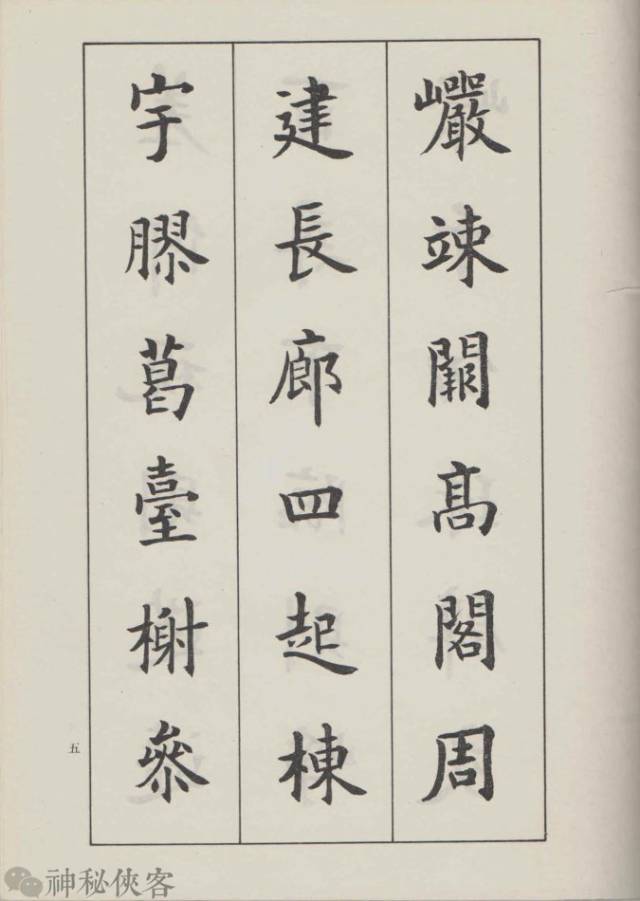 巖竦闕髙閣周
建長廊四起棟
宇膠葛臺榭叅
五
神秘俠客